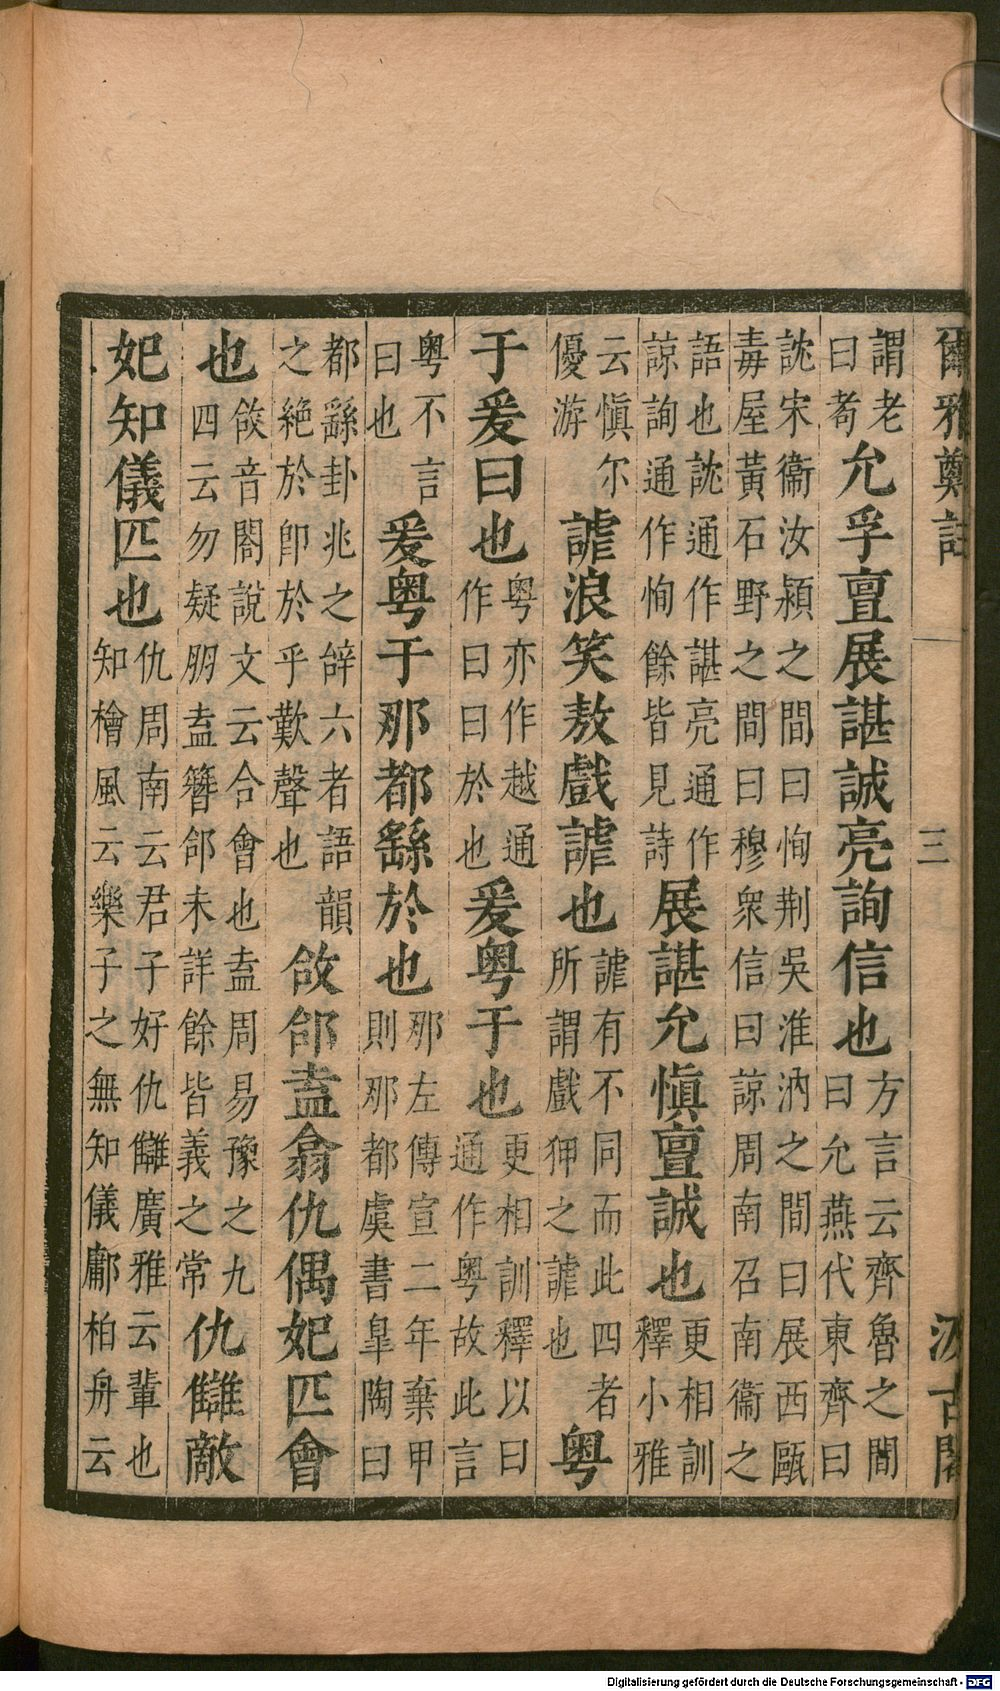 爾雅鄭註
三
汲古閣
謂老
曰耇
允孚亶展諶誠亮詢信也
方言云齊魯之間
曰允燕代東齊曰
訦宋衞汝潁之間曰恂荆吳淮汭之間曰展西甌
毒屋黃石野之間曰穆衆信曰諒周南召南衞之
語也訦通作諶亮通作
諒詢通作恂餘皆見詩
展諶允愼亶誠也
更相訓
釋小雅
云愼尔
優游
謔浪笑敖戲謔也
謔有不同而此四者
所謂戲狎之謔也
粤
于爰曰也
粤亦作越通
作曰曰於也
爰粤于也
更相訓釋以曰
通作粤故此言
粤不言
曰也
爰粤于那都繇於也
那左傳宣二年棄甲
則那都虞書皐陶曰
都繇卦兆之辝六者語韻
之絶於卽於乎歎聲也
敆郃盍翕仇偶妃匹會
也
敆音閤說文云合會也盍周易豫之九
四云勿疑朋盍簪郃未詳餘皆義之常
仇讎敵
妃知儀匹也
仇周南云君子好仇讎廣雅云輩也
知檜風云樂子之無知儀鄘柏舟云
Digitalisierung gefördert durch die Deutsche Forschungsgemeinschaft - DFG